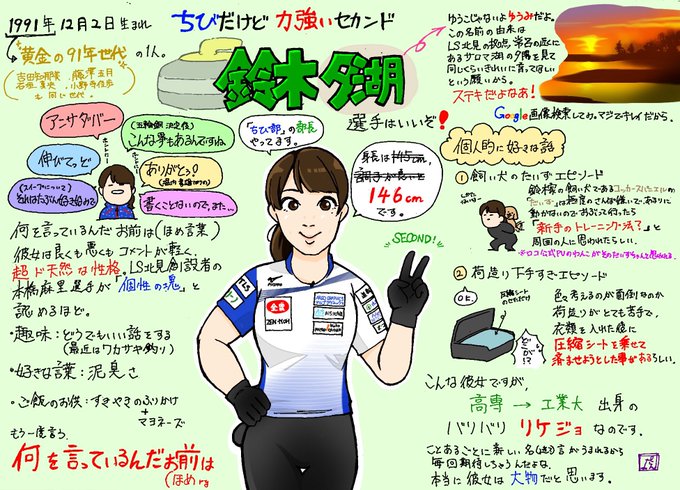 1991年12月2日生まれ
"黄金の91年世代"
の1人。
ちびだけど 力強いセカンド
鈴木夕湖
選手はいいぞ!
ゆうこじゃないよゆうみだよ。
この名前の由来は
LS北見の拠点、常呂の近に
あるサロマ湖の夕陽を見て
同じくらいきれいに育ってほしい
という願いから。
ステキだよなあ!
Google画像検索してみ。マジでキレイだから。
アンサダバー
(五輪銅決定後)
こんな事もあるんですね。
伸びてっど
ありがとう!
(スイープについて)
書くことないので、また…
「ちび部」の部長
やってます。
身長は145cm、
146cm
です。
SECOND!
何を言っているんだお前は(ほめ言葉)
彼女は良くも悪くもコメントが軽く、
超ド天然な性格。LS北見創設者の
本橋麻里選手が「個性の塊」と
認めるほど。
・趣味:どうでもいい話をする
(最近はワカサギ釣り)
・好きな言葉:泥臭さ
・ご飯のお供:すきやきのふりかけ
+
マヨネーズ
もう一度言う、
何を言っているんだお前は
(ほめ
MIZUNO
全農
ZEN-NOH
個人的に好きな話
①飼い犬のたいずエピソード
鈴木家の飼い犬であるコッカースパニエルの
「たいず」は極度のさんぽ嫌いで、あまりに
動かないのでおぶって行ったら
「新手のトレーニング法?」と
周囲の人に思われたらしい。
②荷造り下手すぎエピソード
OK.
圧縮シート
のせただけ
どこが!?
色々考えるのが面倒なのか
荷造りがとても苦手で、
衣類を入れた後に
圧縮シートを乗せて
済ませようとした事があるらしい。
こんな彼女ですが、
高専→工業大 出身の
バリバリ リケジョ なのです。
ことあるごとに新しい名(迷)言がうまれるから
毎回期待しちゃうんだよな。
本当に彼女は大物だと思います。